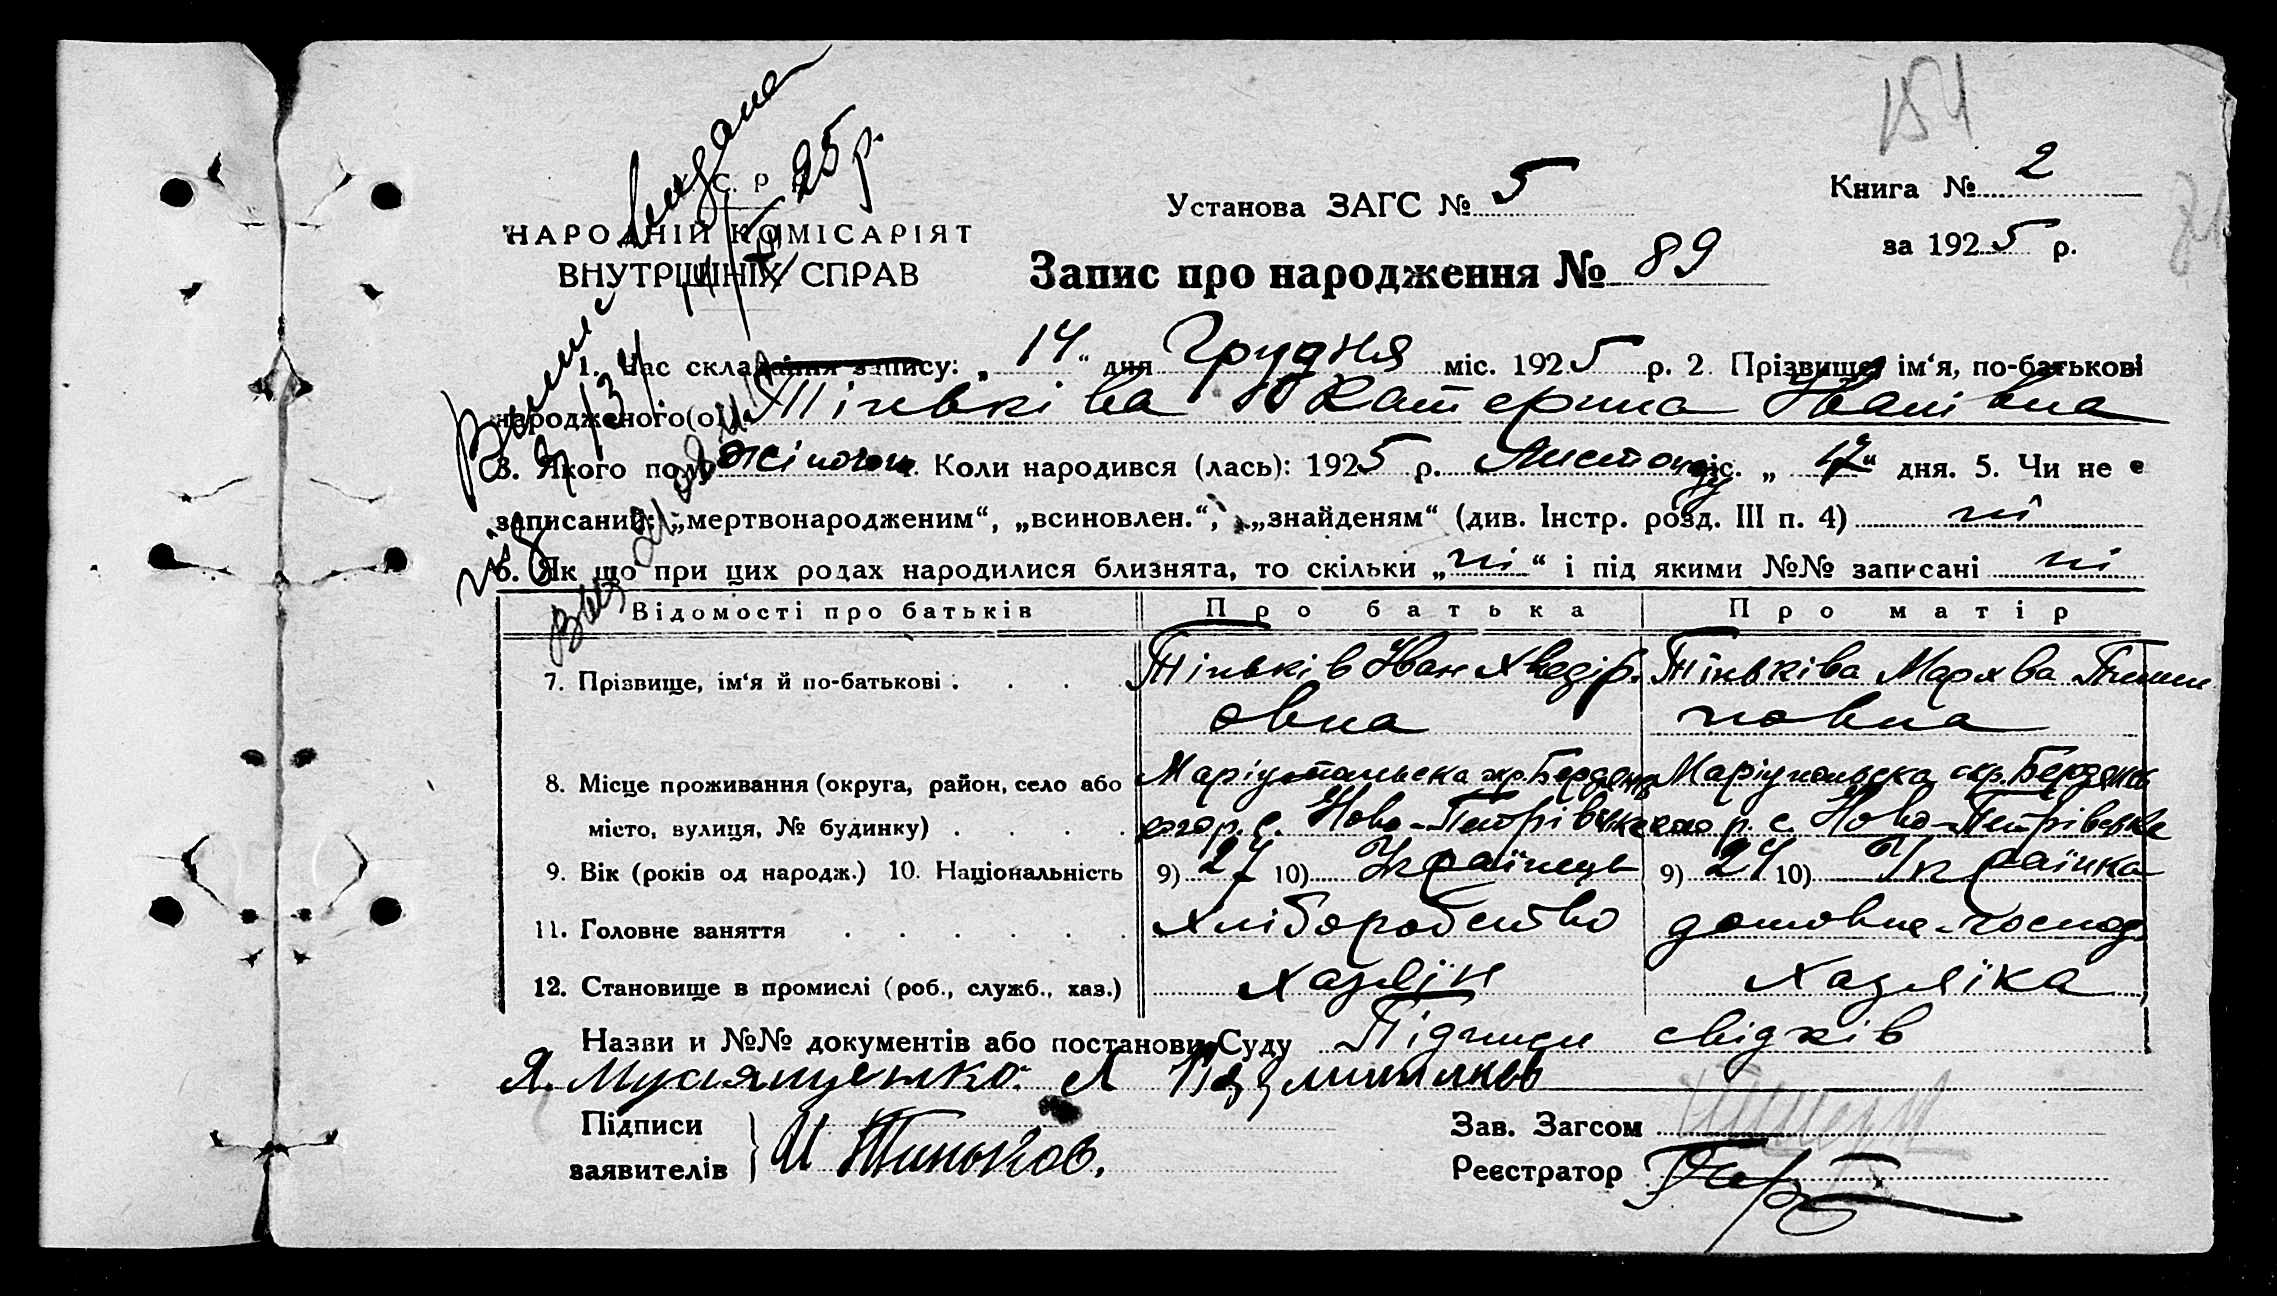 154
С. Р
Установа ЗАГС № 5
Книга № 2
за 1925 р.
НАРОДНІЙ КОМІСАРІЯТ
ВНУТРІШНІХ СПРАВ
Запис про народження № 89
Виписс видана
25 р.
1. Час складання запису: „ 14 " дня Грудня міс. 1925 р. 2. Прізвище, ім‘я, по-батькові
народженого(ої) Тіньківа Катерина Іванівна
3. Якого полу жіночого. Коли народився (лась): 1925 р. Листопаду міс. „ 17 " дня. 5. Чи не є
записаний: „мертвонародженим“, „всиновлен.“, „знайденям“ (див. Інстр. розд. III п. 4) ні
6. Як що при цих родах народилися близнята, то скільки „ ні “ і під якими №№ записані ні
Відомості про батьків Про батька Про матір
7. Прізвище, ім‘я й по-батькові Тіньків Іван Хведір. Тіньківа Мархва
овна новна
8. Місце проживання (округа, район, село або Маріупольська окр. Бердянс Маріупольска окр. Бердянсь
місто, вулиця, № будинку) кого р. с. Ново-Петрівка кого р. с. Ново-Петрівське
9. Вік (років од народж.) 10. Національність 9) 27 10) Українець 9) 24 10) Українка
11. Головне заняття Хліборобство домовне-господ.
12. Становище в промислі (роб., служб., хаз.) Хазяїн Хазяїка
Назви и №№ документів або постанови Суду Підписи свідків
Я. Мусияпуенко
Підписи
заявителів И Тиньков.
Зав. Загсом
Реєстратор